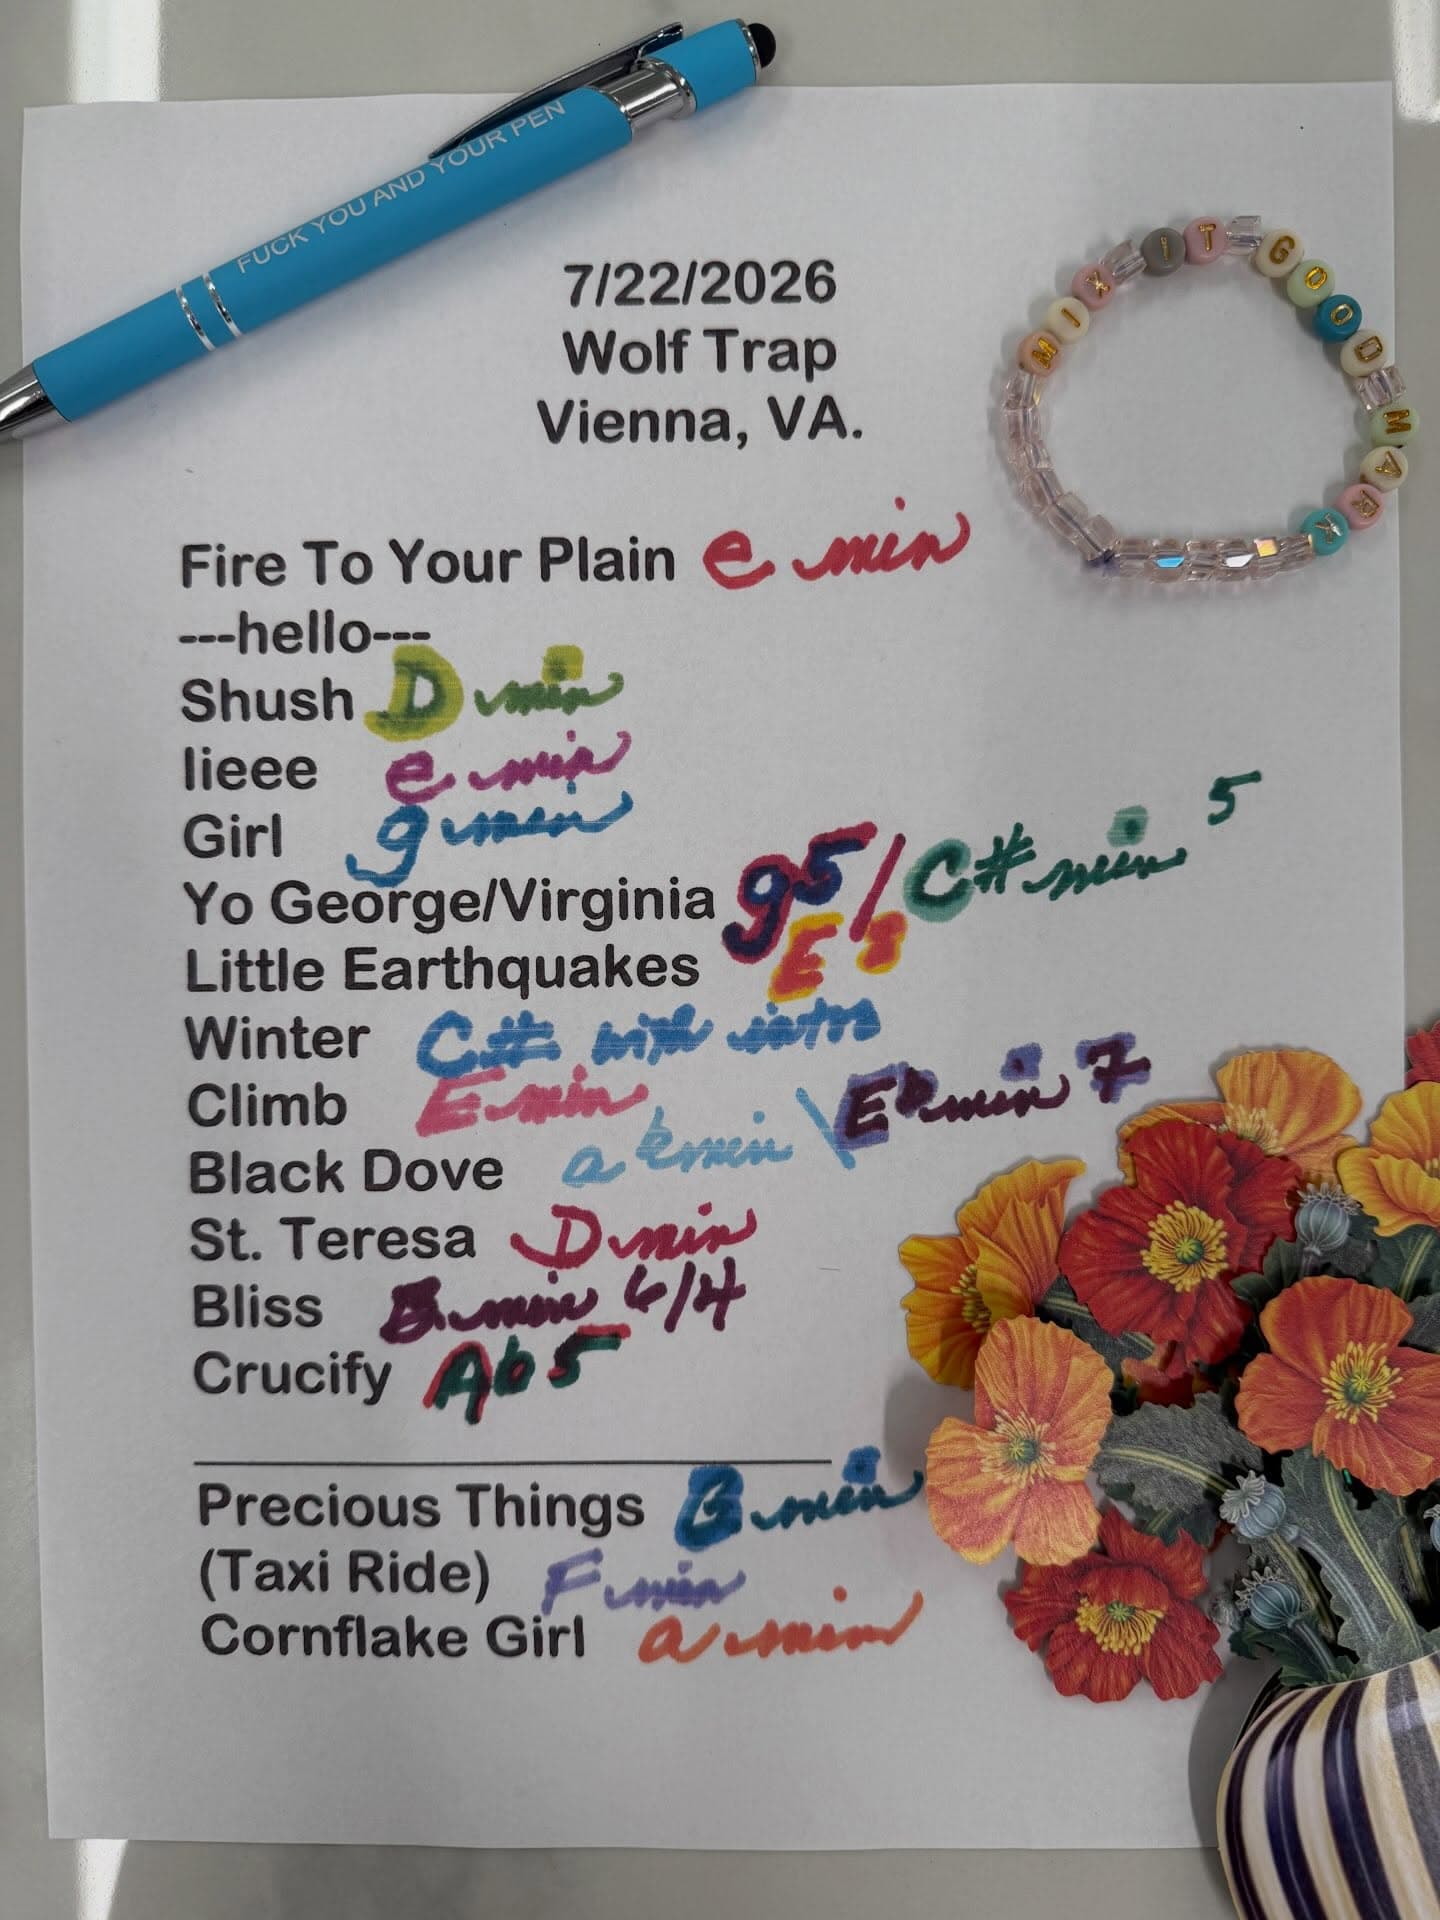 FUCK YOU AND YOUR PEN
MIX IT GOOD MARK
7/22/2026
Wolf Trap
Vienna, VA.
Fire To Your Plain e min
---hello---
Shush D min
Iieee e min
Girl g min
Yo George/Virginia g5/C# min 5
Little Earthquakes E 8
Winter C# with intro
Climb E min
Black Dove a b min \ Eb min 7
St. Teresa D min
Bliss B min 6/4
Crucify Ab 5
Precious Things B min
(Taxi Ride) F min
Cornflake Girl a min